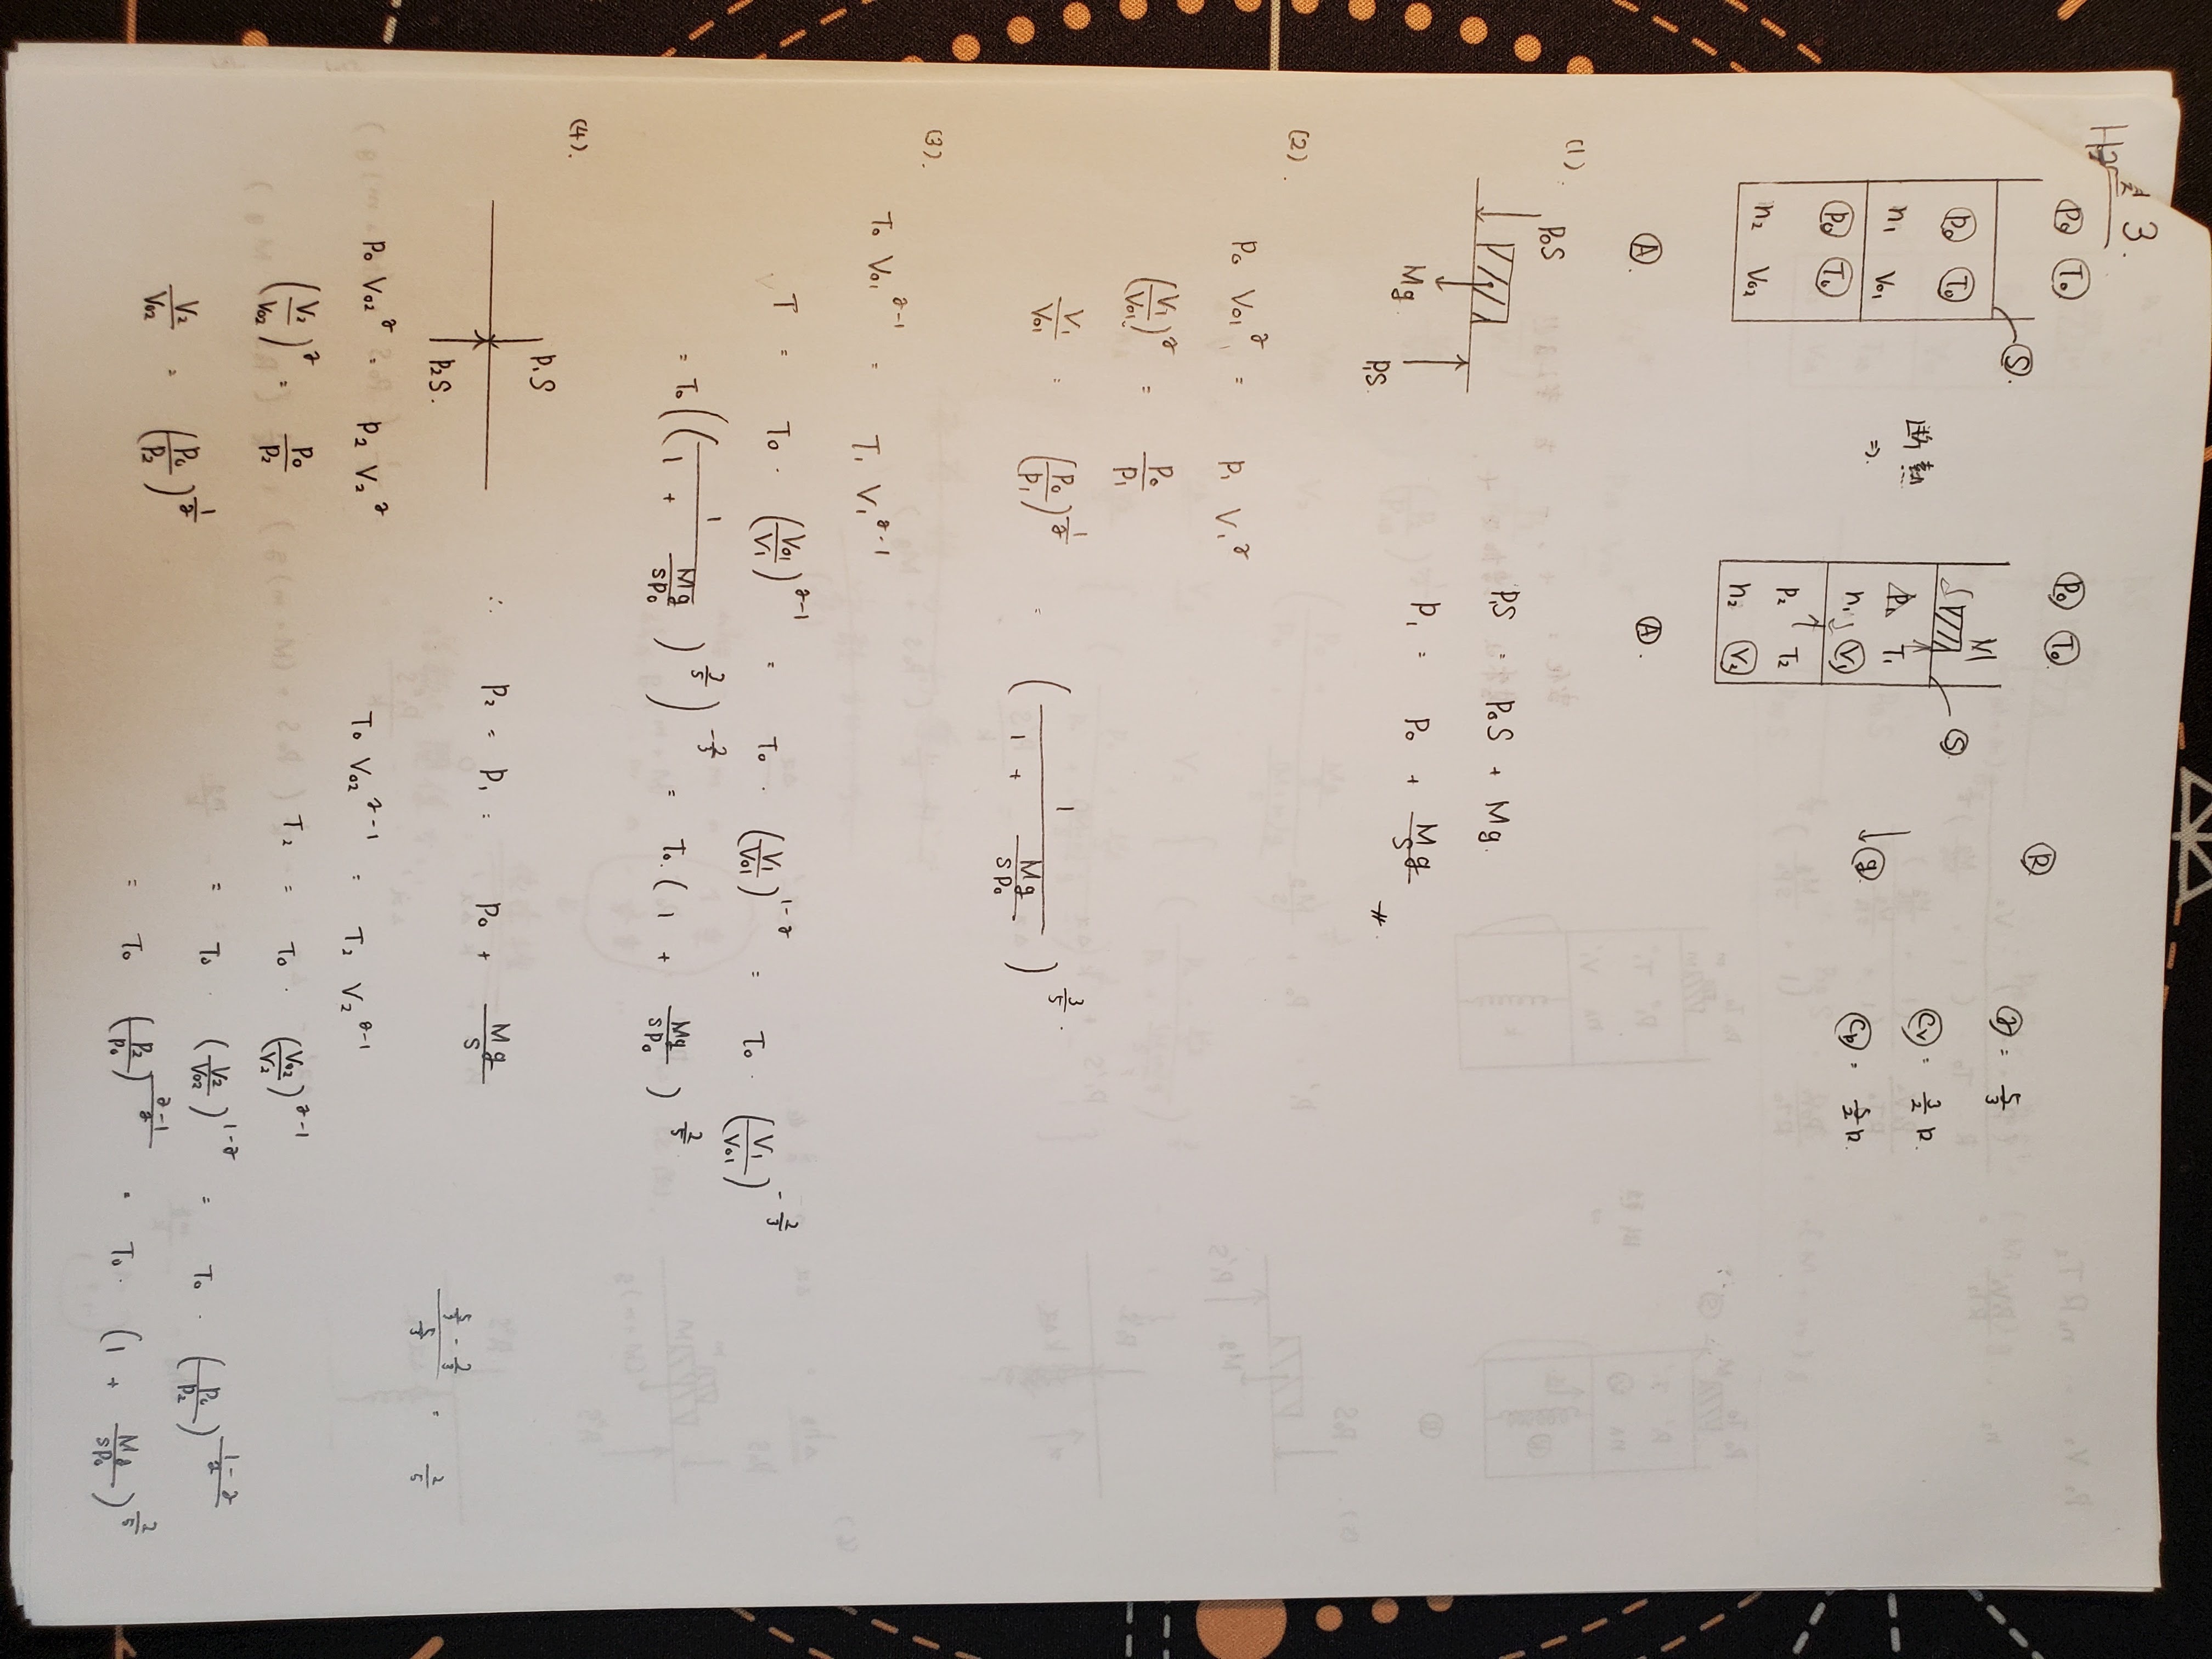 3.
P₀ T₀
P₀ T₀
n₁ V₀₁
P₀ T₀
n₂ V₀₂
S
Ⓐ.
断熱
⇒.
P₀ T₀
M
P₁ T₁
n₁ V₁
P₂ T₂
n₂ V₂
S
Ⓐ.
R
g
γ = 5/3
Cv = 3/2 R.
Cp = 5/2 R.
(1).
P₀S
Mg
P₁S.
P₁S = P₀S + Mg.
P₁ = P₀ + Mg/S
(2).
P₀ V₀₁^γ = P₁ V₁^γ
(V₁/V₀₁)^γ = P₀/P₁
V₁/V₀₁ = (P₀/P₁)^(1/γ) = (1/(1 + Mg/SP₀))^(3/5).
(3).
T₀ V₀₁^(γ-1) = T₁ V₁^(γ-1)
T = T₀ · (V₀₁/V₁)^(γ-1) = T₀ · (V₁/V₀₁)^(1-γ) = T₀ · (V₁/V₀₁)^(-2/3)
= T₀ ((1/(1 + Mg/SP₀))^(3/5))^(-2/3) = T₀ · (1 + Mg/SP₀)^(2/5)
(4).
P₁S
P₂S.
∴ P₂ = P₁ = P₀ + Mg/S
P₀ V₀₂^γ = P₂ V₂^γ
(V₂/V₀₂)^γ = P₀/P₂
V₂/V₀₂ = (P₀/P₂)^(1/γ)
T₀ V₀₂^(γ-1) = T₂ V₂^(γ-1)
T₂ = T₀ · (V₀₂/V₂)^(γ-1)
= T₀ · (V₂/V₀₂)^(1-γ) = T₀ · (P₀/P₂)^((1-γ)/γ)
= T₀ (P₂/P₀)^((γ-1)/γ) = T₀ · (1 + Mg/SP₀)^(2/5)
= 2/5